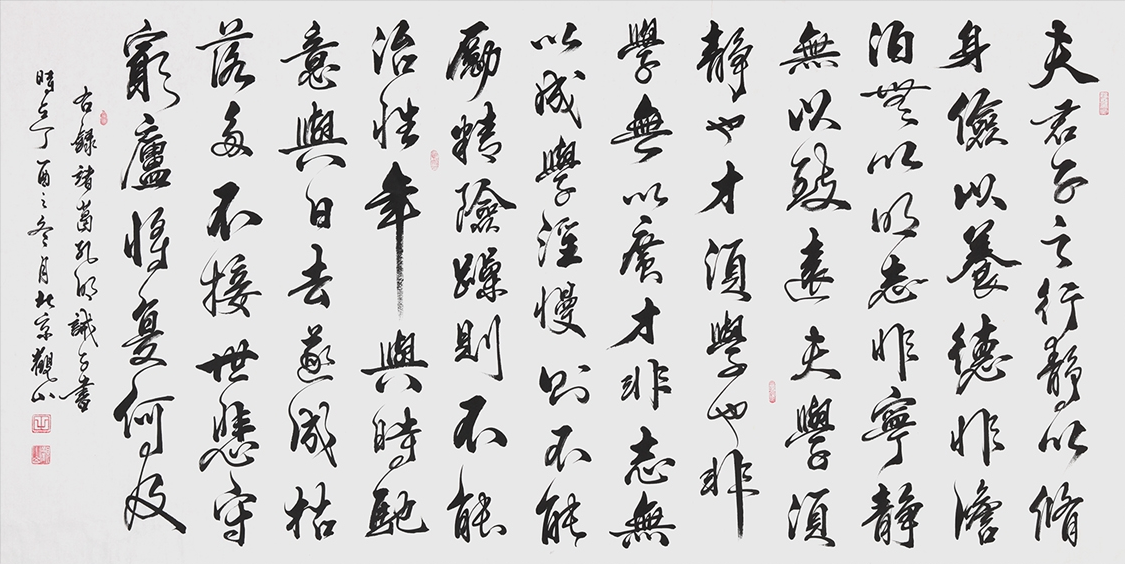 夫君子之行靜以脩
身儉以養德非澹
泊無以明志非寧靜
無以致遠夫學須
靜也才須學也非
學無以廣才非志無
以成學淫慢則不能
勵精險躁則不能
治性年與時馳
意與日去遂成枯
落多不接世悲守
窮廬將復何及
右錄諸葛孔明誡子書
時丁酉之冬月北京觀山